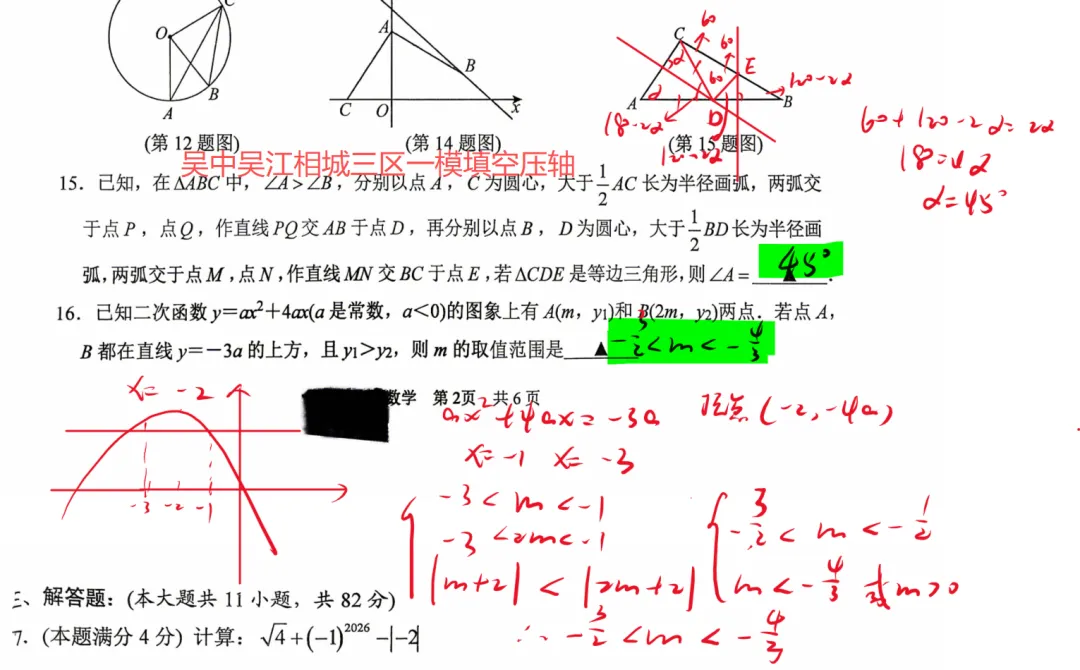 C
O
B
A
A
B
C
O
x
C
60
60
α
60
E
A
α
D
B
120-2α
18-2α
120-2α
(第12题图)
(第14题图)
(第15题图)
60+120-2α=2α
18=4α
α=45°
吴中吴江相城三区一模填空压轴
15．已知，在△ABC中，∠A>∠B，分别以点A，C为圆心，大于1/2AC长为半径画弧，两弧交
于点P，点Q，作直线PQ交AB于点D，再分别以点B，D为圆心，大于1/2BD长为半径画
弧，两弧交于点M，点N，作直线MN交BC于点E，若△CDE是等边三角形，则∠A=▲ 45°．
16．已知二次函数y=ax²+4ax(a是常数，a<0)的图象上有A(m，y₁)和B(2m，y₂)两点．若点A，
B都在直线y=－3a的上方，且y₁>y₂，则m的取值范围是▲ -3/2<m<-4/3
x=-2
数学 第2页 共6页
ax²+4ax=-3a
顶点(-2,-4a)
x=-1 x=-3
-3 -2 -1
-3<m<-1
-3<2m<-1
|m+2|<|2m+2|
-3/2<m<-1/2
m<-4/3 或m>0
∴-3/2<m<-4/3
三、解答题：(本大题共11小题，共82分)
7．(本题满分4分) 计算：√4+(−1)²⁰²⁶−|−2|